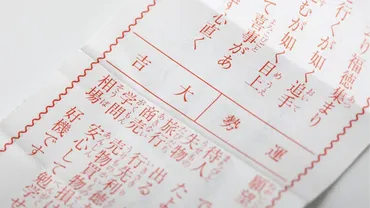 り福徳集まり
行くが如く追手
むが如く目上
て喜事があ
ず心直く
運勢
大吉
願望
待人 たよ
失物 出る
旅行
商売
学問 安心して勉学せ
相場 好機です